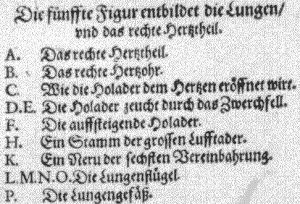 Die fünffte Figur entbildet die Lungen/
vnd das rechte Hertztheil.
A. Das rechte Hertztheil.
B. Das rechte Hertzohr.
C. Wie die Holader dem Hertzen eröffnet wirt.
D.E. Die Holader zeucht durch das Zwerchfell.
F. Die auffsteigende Holader.
H. Ein Stamm der grossen Lufftader.
K. Ein Nerv der sechsten Vereinbahrung.
L.M.N.O. Die Lungenflügel.
P. Die Lungengefäß.